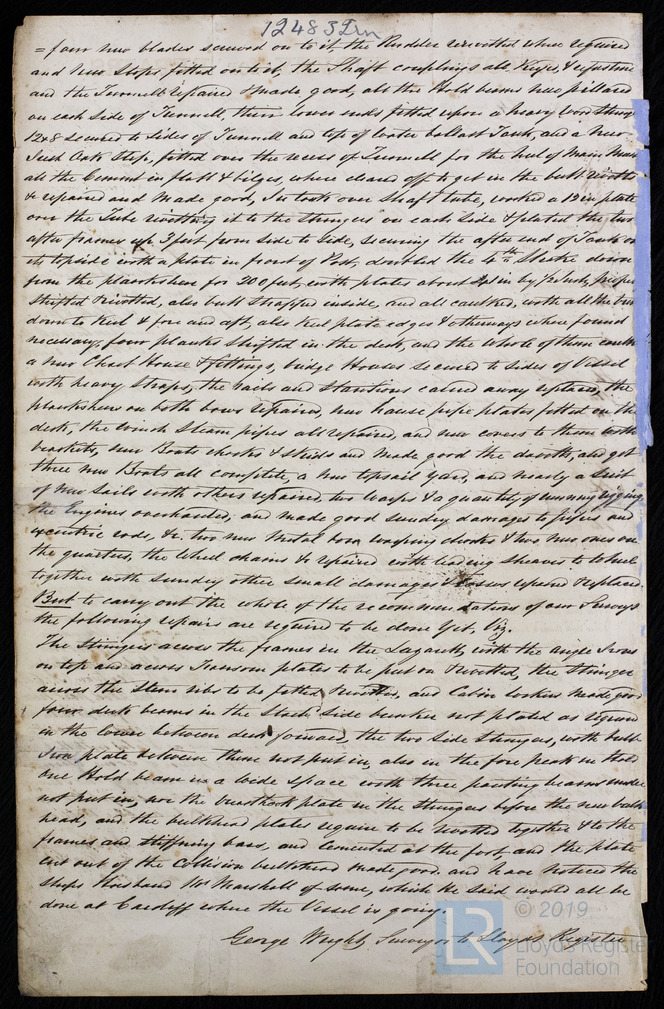 12483 Irn
= four new blades screwed on to it the Rudder rerivetted where required
and new Stops fitted on to it, the Shaft couplings all Keyed, & adjusted
and the Tunnell repaired & made good, all the Hold beams new pillared
on each side of Tunnell, their lower ends fitted upon a heavy wood Stringer
12x8 secured to sides of Tunnell and top of water ballast Tank, and a new
Oak Step, fitted over the recess of Tunnell for the heel of Main Mast
all the Cement in flatt & bilges, where cleared off to get in the butt
& repaired and made good, In took over Shaft tube, worked a 19 in plate
over the Tube rivetting it to the Stringers on each side & plated the two
after frames up 3 feet from side to side, securing the after end of Tank on
its topside with a plate in front of Post, doubled the 4th Strake down
from the planksheer for 200 feet, with plates about in by inch, proper
shifted & rivetted, also butt strapped inside, and all caulked, with all the
down to Keel & fore and aft, also Keel plate edges & otherways where found
necessary, four planks shifted in the deck, and the whole of them caulked
a new Chart House & fittings, bridge Houses secured to sides of Vessel
with heavy Straps, the rails and Stantions carried away replaced, the
planksheer on both bows repaired, new hause pipe plates fitted on the
deck, the winch steam pipes all repaired, and new covers to them with
brackets, new Boats chocks & skids and made good the davitts, and got
three new Boats all complete, a new topsail yard, and nearly a Suit
of new Sails with others repaired, two warps & a quantity of running rigging
the Engines overhauled, and made good sundry damages to pipes and
excentric rods, &c. two new metal bow warping chocks & two new ones on
the quarters, the Wheel chains &c repaired with leading sheaves to Wheel
together with sundry other small damages & losses repaired & replaced.
But to carry out the whole of the recommendations of our Surveys
the following repairs are required to be done yet, Viz.
The Stringers across the frames in the Lazarett, with the angle Irons
on top and across Transom plates to be put on & rivetted, the Stringer
across the Stern ribs to be fitted & rivetted, and Cabin lockers made good
four deck beams in the Stock side bunker not plated as required
in the lower between decks forward, the two side Stringers, with bulb
Iron plate between them not put in, also in the fore peak in Hold
one Hold beam in a wide space with three panting beams under
not put in, nor the breasthook plate in the Stringers before the new bulk
head, and the bulkhead plates require to be rivetted together & to the
frames and stiffning bars, and cemented at the foot, and the plate
cut out of the collision bulkhead made good. and have noticed the
Ships Husband Mr Marshall of same, which he said would all be
done at Cardiff where the Vessel is going.
George Wright Surveyor to Lloyds Register
LR © 2019
Lloyd's Register
Foundation